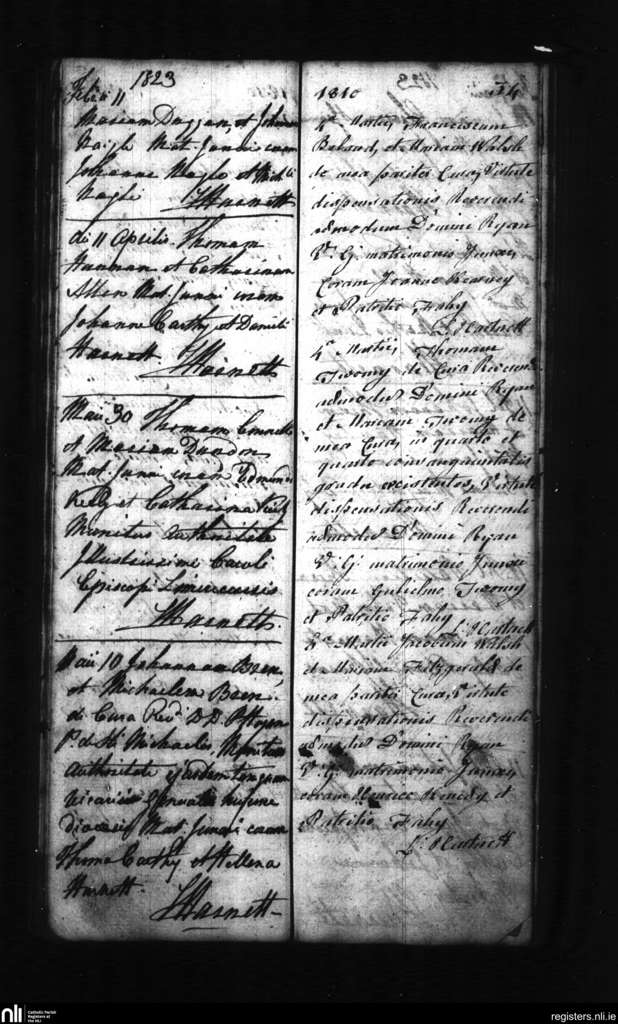 1823
Feb 11
Mariam Duggan, et Johan
Nagle Mat. Junxi coram
Johanne Nagle et Mich
Nagle Harnett
di 11 Aprilis Thomam
Hannan et Catharinam
Allen Mat. Junxi coram
Johanne Carthy et Danieli
Harnett Harnett
Maii 30 Thomam
et Mariam Dundon
Mat. Junxi coram Edmund
Kelly et Catharina Kelly
Munitus Authoritate
Illustrissimi Caroli
Episcopi Limericensis
Harnett
Maii 10 Johannam Breen,
et Michaelem Breen
de Cura Revd. D. D.
Pd. Sti. Michaelis Munitus
Authoritate ejusdem tanquam
Vicarius Generalis hujusce
diocesis Mat. Junxi coram
Thoma Carthy et Hellena
Harnett.
Harnett
1810
4a Martii, Franciscum
Boland, et Mariam Walsh
de mea pariter Cura, Virtute
dispensationis Reverendi
admodum Domini Ryan
V. G. matrimonio Junxi,
Coram Joanne Kearney
et Patritio Fahy
4a Martii, Thomam
Twomy de Cura Reverendi
admodum Domini Ryan
et Mariam Twomy de
mea Cura, in quarto et
quarto consanguinitatis
gradu existentes, Virtute
dispensationis Reverendi
admodum Domini Ryan
V. G. matrimonio Junxi
coram Gulielmo Twomy
et Patritio Fahy
Martii Jacobum Walsh
et Mariam Fitzgerald de
mea pariter Cura, Virtute
dispensationis Reverendi
admodum Domini Ryan
V. G. matrimonio Junxi,
coram Maurice Kennedy et
Patritio Fahy
nli
Catholic Parish
Registers at
the NLI
registers.nli.ie